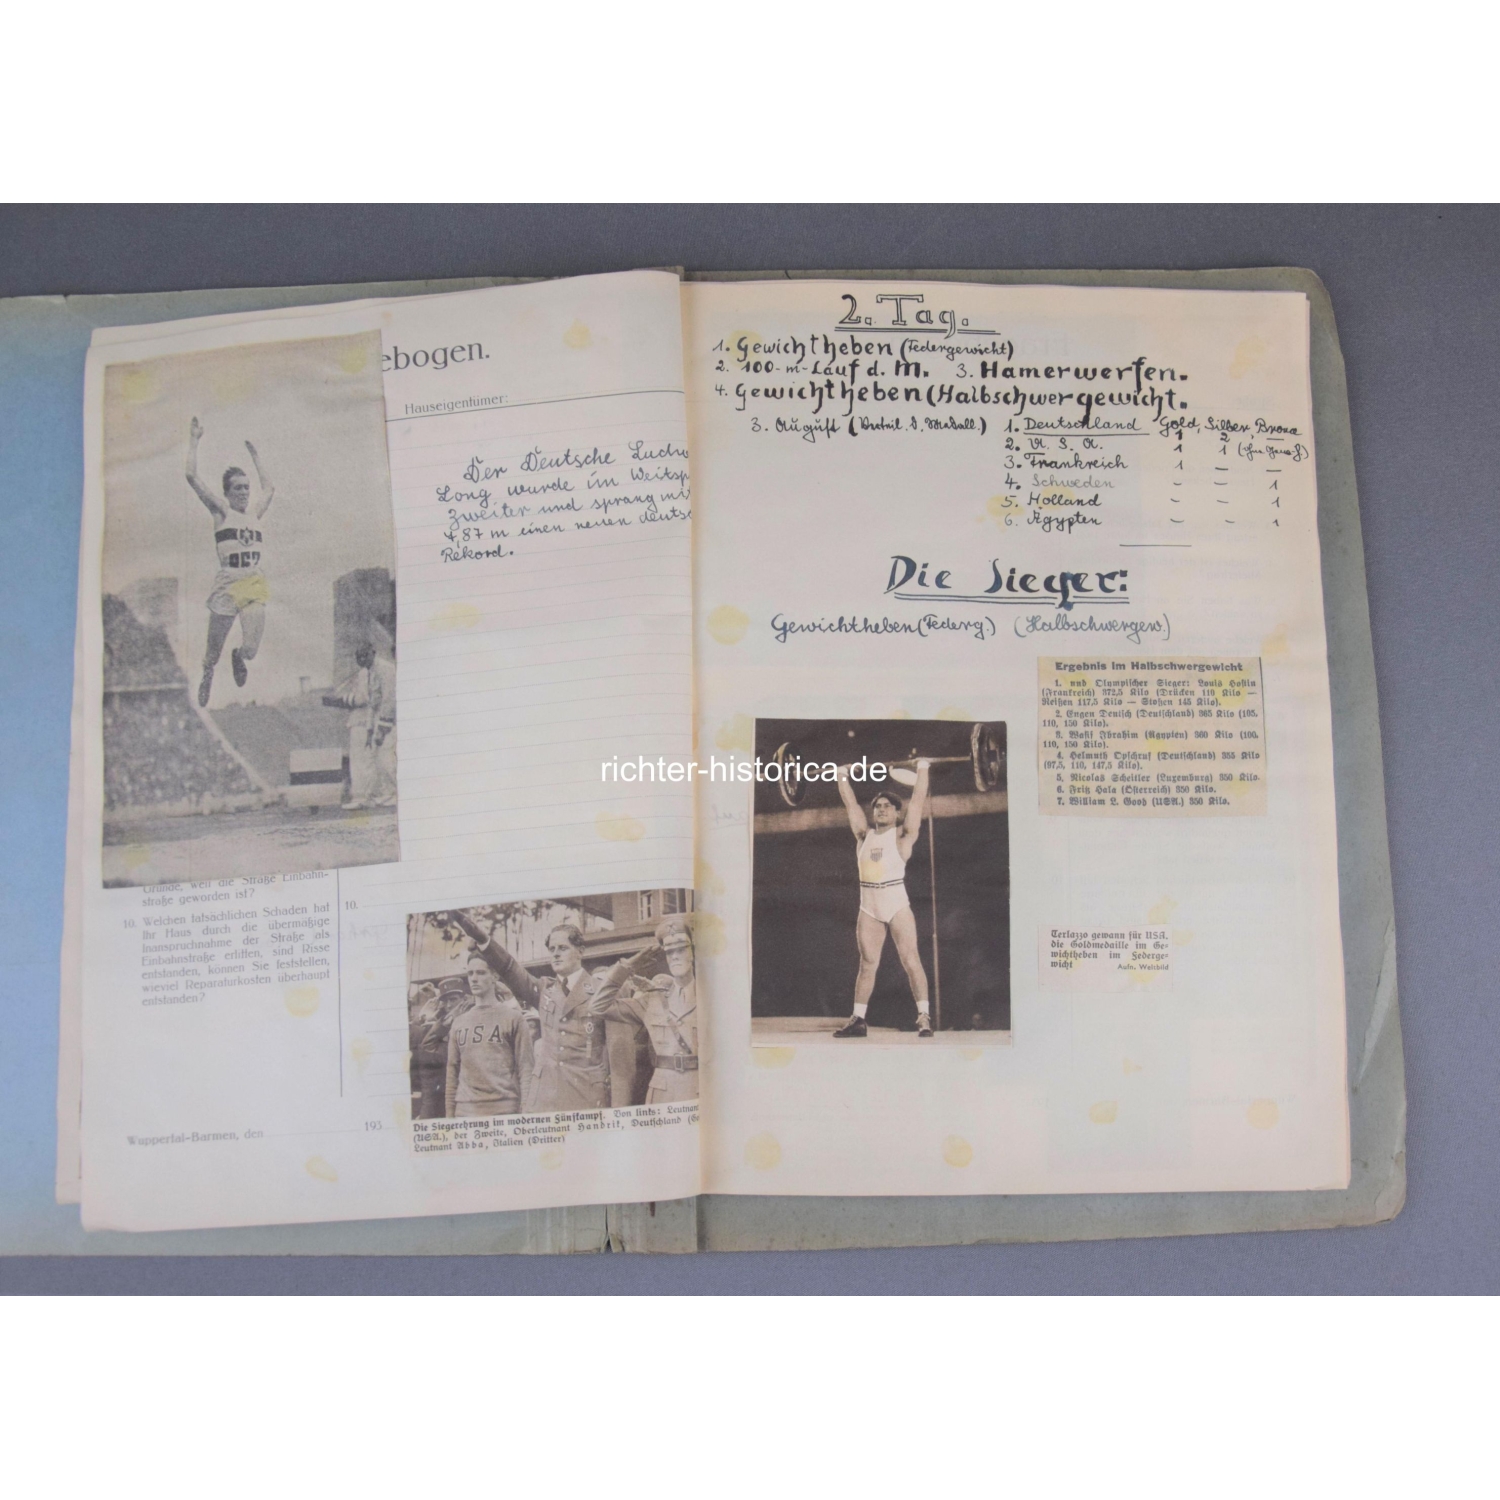 ebogen.
Hauseigentümer:
Der Deutsche Ludw
Long wurde im Weitsp
Zweiter und sprang mit
4,87 m einen neuen deutsc
Rekord.
967
Gründe, weil die Straße Einbahn-
straße geworden ist?
10. Welchen tatsächlichen Schaden hat
Ihr Haus durch die übermäßige
Inanspruchnahme der Straße als
Einbahnstraße erlitten, sind Risse
entstanden, können Sie feststellen,
wieviel Reparaturkosten überhaupt
entstanden?
10.
Wuppertal-Barmen, den 193
USA
Die Siegerehrung im modernen Fünfkampf. Von links: Leutnan
(USA.), der Zweite, Oberleutnant Handrik, Deutschland (
Leutnant Abba, Italien (Dritter)
2. Tag.
1. Gewichtheben (Federgewicht)
2. 100-m-Lauf d. M. 3. Hamerwerfen.
4. Gewichtheben (Halbschwergewicht.
3. August
1. Deutschland Gold, Silber, Bronce
1 2 –
2. U. S. A. 1 1
3. Frankreich 1 – –
4. Schweden – – 1
5. Holland – – 1
6. Ägypten – – 1
Die Sieger:
Gewichtheben (Federg.) (Halbschwergew.)
Ergebnis im Halbschwergewicht
1. und Olympischer Sieger: Louis Hostin
(Frankreich) 372,5 Kilo (Drücken 110 Kilo —
Reißen 117,5 Kilo — Stoßen 145 Kilo).
2. Eugen Deutsch (Deutschland) 365 Kilo (105,
110, 150 Kilo).
3. Wasif Ibrahim (Ägypten) 360 Kilo (100,
110, 150 Kilo).
4. Helmuth Opschruf (Deutschland) 355 Kilo
(97,5, 110, 147,5 Kilo).
5. Nicolas Scheitler (Luxemburg) 350 Kilo.
6. Fritz Hala (Österreich) 350 Kilo.
7. William L. Good (USA.) 350 Kilo.
Terlazzo gewann für USA.
die Goldmedaille im Ge-
wichtheben im Federge-
wicht Aufn. Weltbild
richter-historica.de